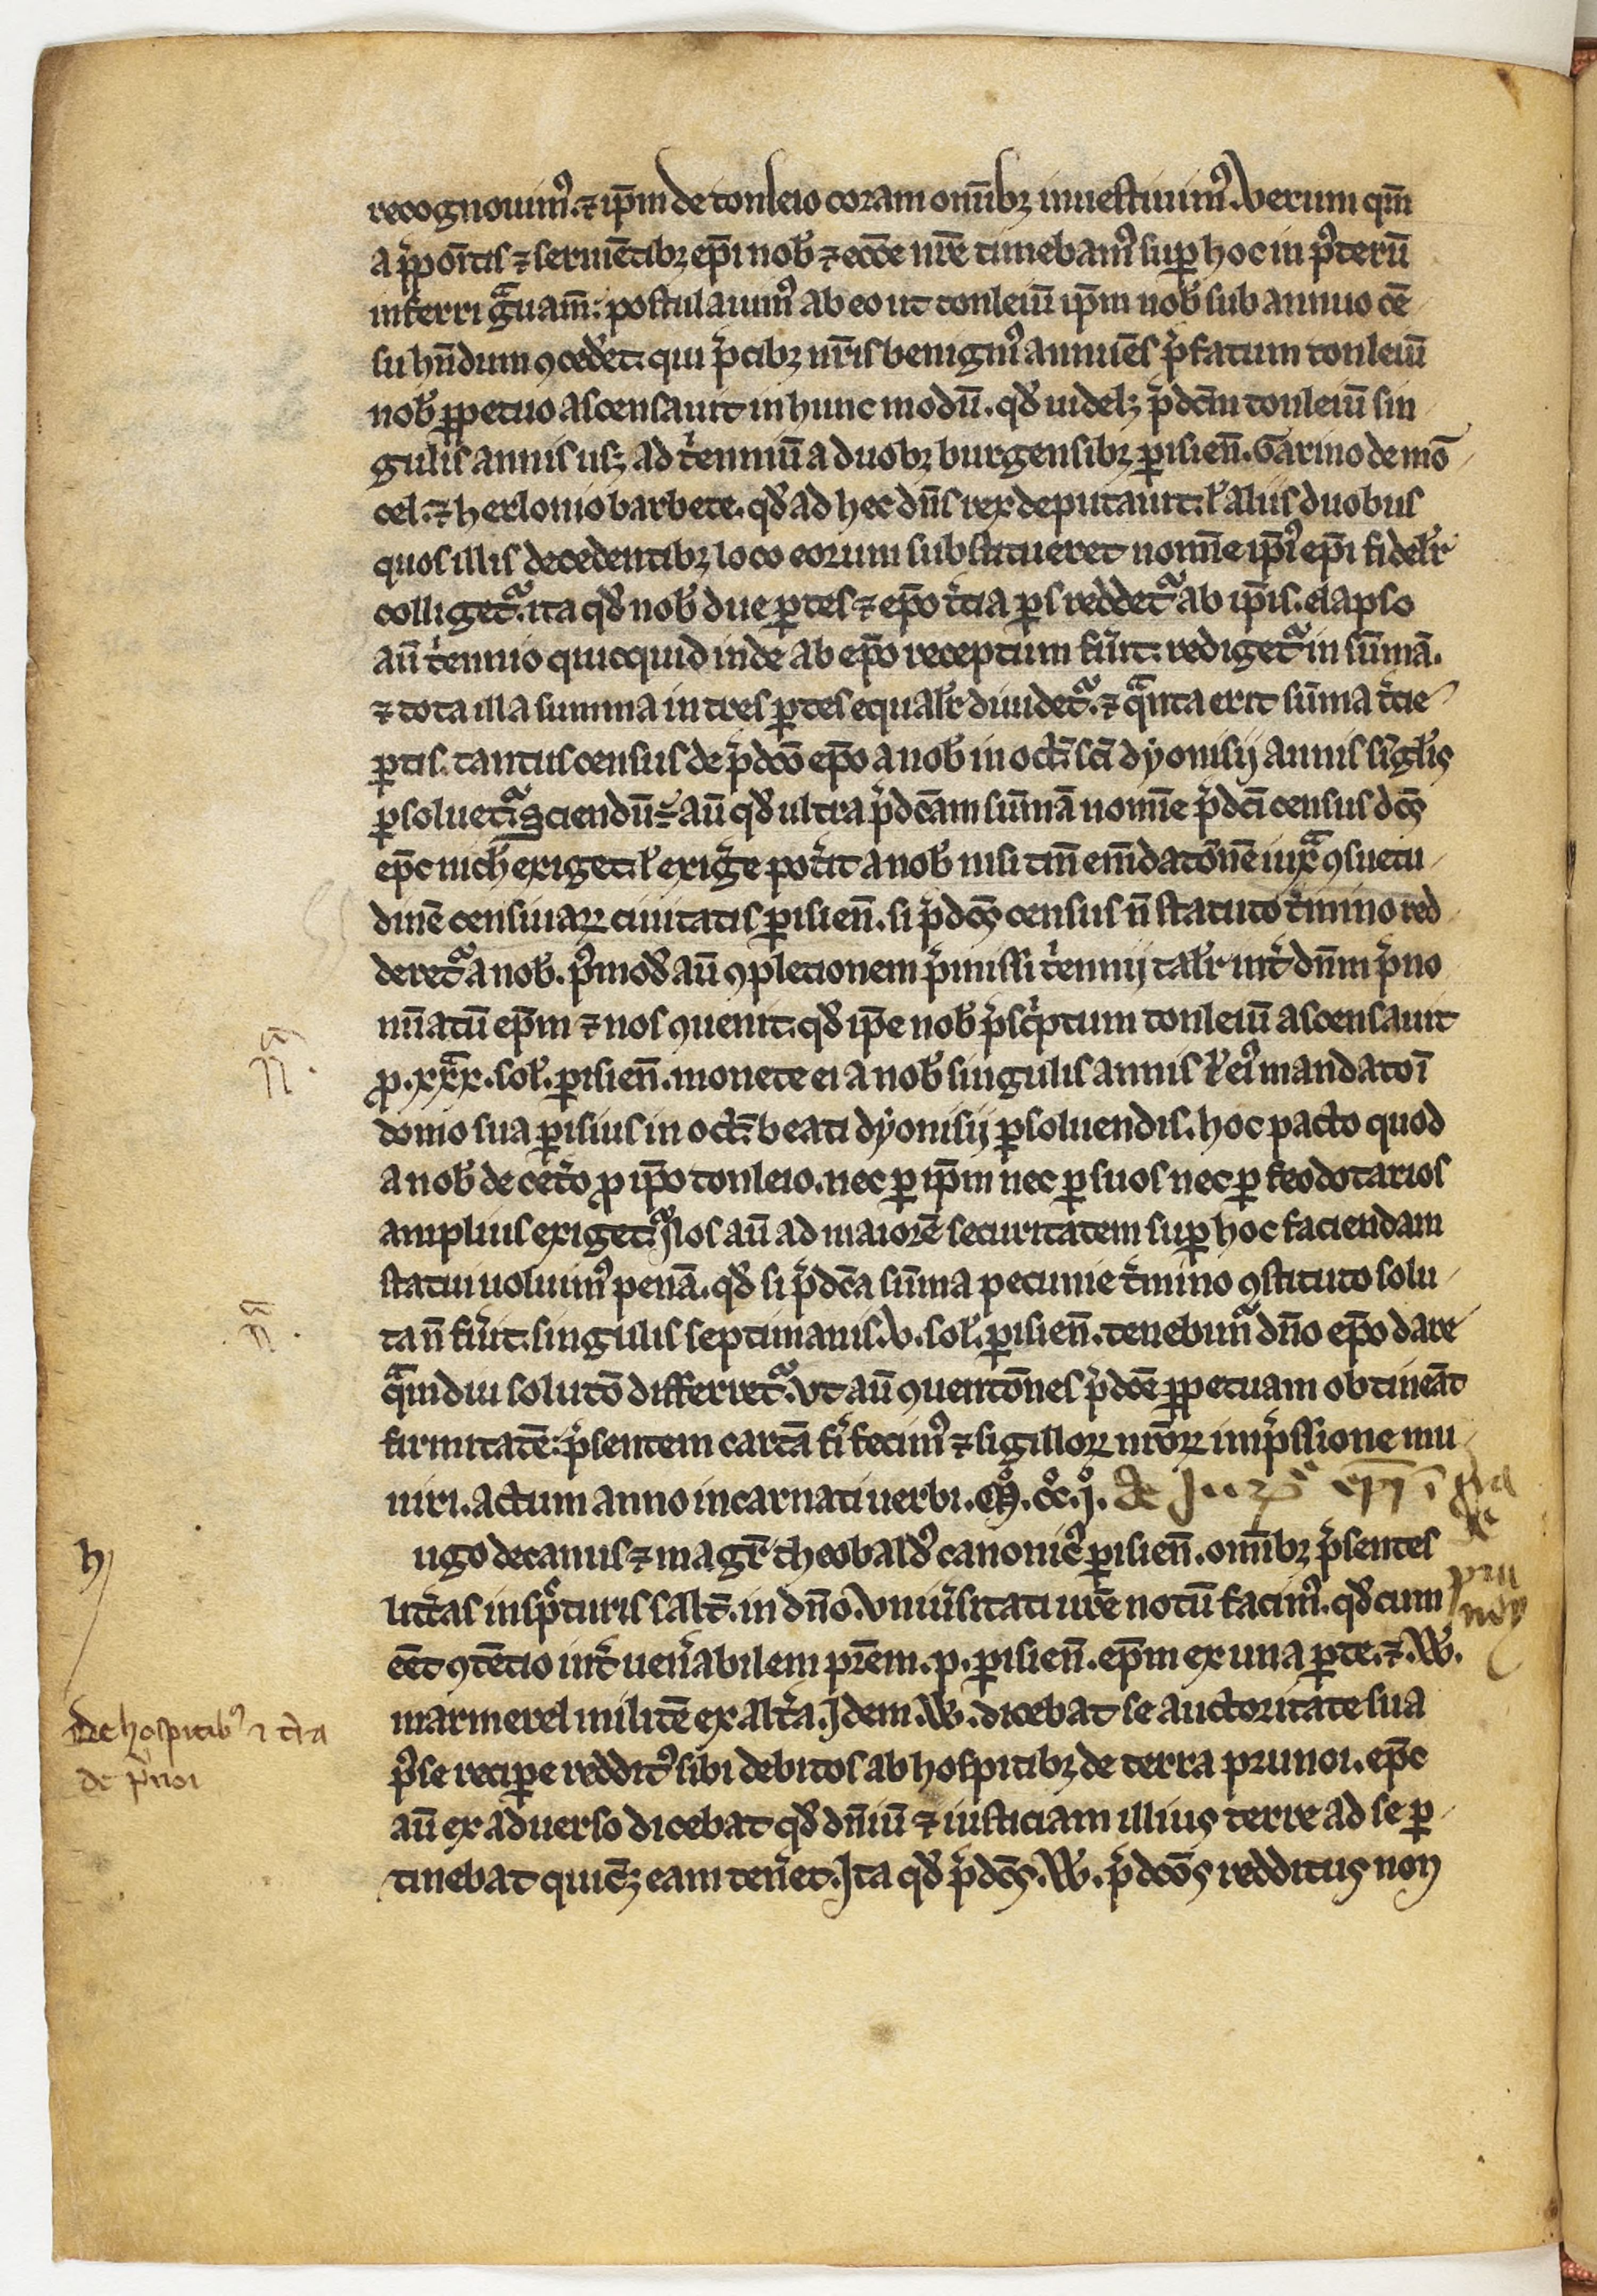 recognouim᷒. ⁊ ip̄m de tonleio coram om̄ibꝫ inuestiuim᷒. Verum qm̄
a p̄poītis ⁊ seruiētibꝫ ep̄i nob̄ ⁊ eccē nr̄e timebam᷒ suꝑ hoc in post᷒terū
inferri gͣuam̄: postulauim᷒ ab eo ut tonleiū ip̄m nob̄ sub annuo cē
su hn̄dum ꝯcedēt. qui p̄cibꝫ nr̄is benign᷒ annuēs p̄fatum tonleiū
nob̄ ꝑpetuo ascensauit in hunc modū. qđ uidelꝫ p̄dc̄m tonleiū sin
gulis annis usqꝫ ad t̓enniū a duobꝫ burgensibꝫ ꝑisien̄. Garino de mō
cel. ⁊ herlonio barbete. qđ ad hec dn̄s rex deputauit. ł aliis duobus
quos illis decedentibꝫ loco eorum substitueret nomīe ip̄i᷒ ep̄i fidelr̄
colligetᷣ. ita qđ nob̄ due ꝑtes ⁊ ep̄o t̓cia ꝑs reddetᷣ ab ip̄is. elapso
aū t̓ennio quicquid inde ab ep̄o receptum fu̓it. redigetᷣ in sūmā.
⁊ tota illa summa in tres ꝑtes equalr̄ diuidetᷣ. ⁊ qͣnta erit sūma t̓cie
ꝑtis. tantus census de p̄dc̄o ep̄o a nob̄ in oct̄ sc̄i dyonisij annis singl̄is
ꝑsoluetᷣ. Sciendū ē aū qđ ultra p̄dc̄am sūmā nomīe p̄dc̄i census dc̄s
ep̄c nich̄ exiget. ł exig̓e pot̓it a nob̄ nisi tm̄ em̄datōnē iuxͣ ꝯsuetu
dinē censiuaꝝ ciuitatis ꝑisien̄. si p̄dc̄s census n̄ statuto t̓mino red
deretᷣ a nob̄. p᷒modū aū ꝯpletionem p̄missi t̓ennij talr̄ int̓ dn̄m p̄no
mīatū ep̄m ⁊ nos ꝯuenit. qđ ip̄e nob̄ p̄sc̓ptum tonleiū ascensauit
ꝓ. xxͣx. sol̄. ꝑisien̄. monete ei a nob̄ singulis annis ł ei᷒ mandato ī
domo sua ꝑisius in oct̄ beati dyonisij ꝑsoluendis. hoc pacto quod
a nob̄ de cet̓o ꝓ ip̄o tonleio. nec ꝑ ip̄m nec ꝑ suos nec ꝑ feodotarios
amplius exigetᷣ. Nos aū ad maiorē securitatem suꝑ hoc faciendam
statui uoluim᷒ penā. qđ si p̄dc̄a sūma pecunie t̓mino ꝯstituto solu
ta n̄ fu̓it. singulis septimanis. V. sol̄. ꝑisien̄. tenebimᷣ dn̄o ep̄o dare
qͣmdiu solutō differretᷣ. Vt aū ꝯuentōnes p̄dc̄e ꝑpetuam obtineāt
firmitatē: p̄sentem cartā fi̓ fecim᷒ ⁊ sigilloꝝ nr̄oꝝ imp̄ssione mu
niri. actum anno incarnati uerbi. M̊. cc̊. j̊.
ugo decanus ⁊ magr̄ theobald᷒ canonic᷒ ꝑisien̄. om̄ibꝫ p̄sentes
litt̓as insp̄cturis salt̄. in dn̄o. Vniu̓sitati ur̄e notū facim᷒. qđ cum
eēt ꝯtētio int̓ uen̓abilem pr̄em. p. ꝑisien̄. ep̄m ex una ꝑte. ⁊. W.
marmerel militē ex alt̓a. Idem. W. dicebat se auctoritate sua
p᷒se reciꝑe reddit᷒ sibi debitos ab hospitibꝫ de terra prunoi. ep̄c
aū ex aduerso dicebat qđ dn̄iū ⁊ iusticiam illius terre ad se ꝑ
tinebat quicūqꝫ eam ten̓et. Ita qđ p̄dc̄s. W. p̄dc̄os redditus non
n̄ͣ.
n̄ͣ.
h
De hospitib᷒ ⁊ t̓ra
de p᷒noi